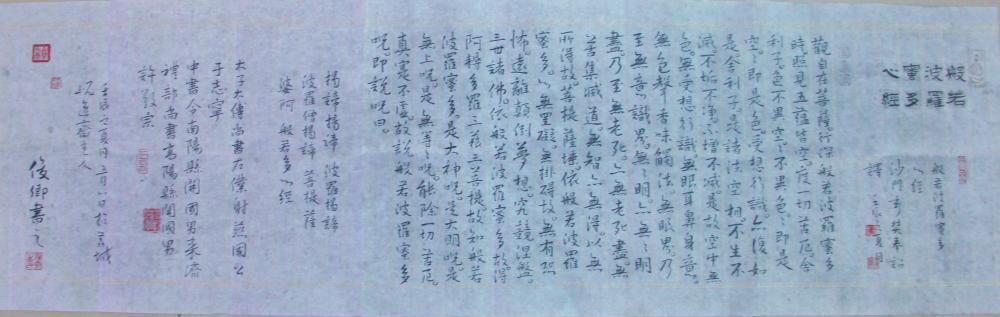 般若
波羅
蜜多
心經
般若波羅蜜多
心經
沙門玄奘奉詔
譯
觀自在菩薩。行深般若波羅蜜多
時。照見五蘊皆空。度一切苦厄。舍
利子。色不異空。空不異色。色即是
空。空即是色。受想行識。亦復如
是。舍利子。是諸法空相。不生不
滅。不垢不淨。不增不減。是故空中無
色。無受想行識。無眼耳鼻舌身意。
無色聲香味觸法。無眼界。乃
至無意識界。無無明。亦無無明
盡。乃至無老死。亦無老死盡。無
苦集滅道。無智亦無得。以無
所得故。菩提薩埵。依般若波羅
蜜多。心無罣礙。無罣礙故。無有恐
怖。遠離顛倒夢想。究竟涅盤。
三世諸佛。依般若波羅蜜多故。得
阿耨多羅三藐三菩提。故知般若
波羅蜜多。是大神呪。是大明呪。是
無上呪。是無等等呪。能除一切苦厄。
真實不虛。故說般若波羅蜜多
呪。即說呪曰。
揭諦揭諦 波羅揭諦
波羅僧揭諦 菩提薩
婆訶 般若多心經
太子太傅尚書左僕射燕國公
于志寧
中書令南陽縣開國男來濟
禮部尚書高陽縣開國男
許敬宗
主人
俊卿書之